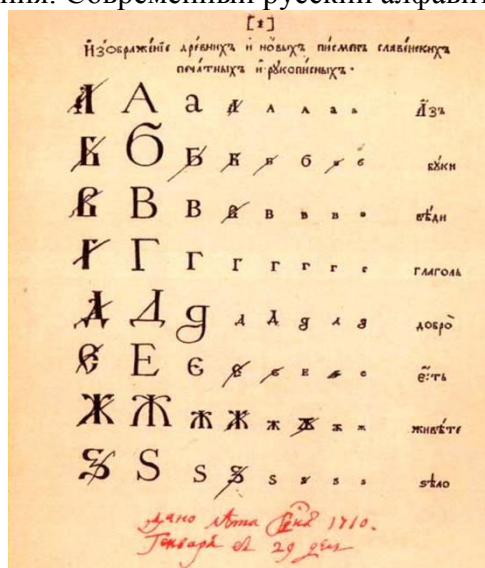 ния. Современный русский алфавит
[1]
И҆зображе́нїе дре́внихъ и҆ но́выхъ пи́сменъ славе́нскихъ
печа́тныхъ и҆ рꙋкопи́сныхъ.
А А а А А А а а а҆́зъ
Б Б Б Б Б б Б б бꙋ́ки
В В В В В В В В вѣ́ди
Г Г Г Г Г Г Г Г глаголь
Д Д д Д Д д Д д добро̀
Є Е Є Є Є Е Є Є е҆́сть
Ж Ж Ж Ж Ж Ж Ж Ж живѣ́те
Ѕ Ѕ Ѕ Ѕ Ѕ Ѕ Ѕ Ѕ ѕѣло
Дано лѣта 1710.
Генваря 29 дня